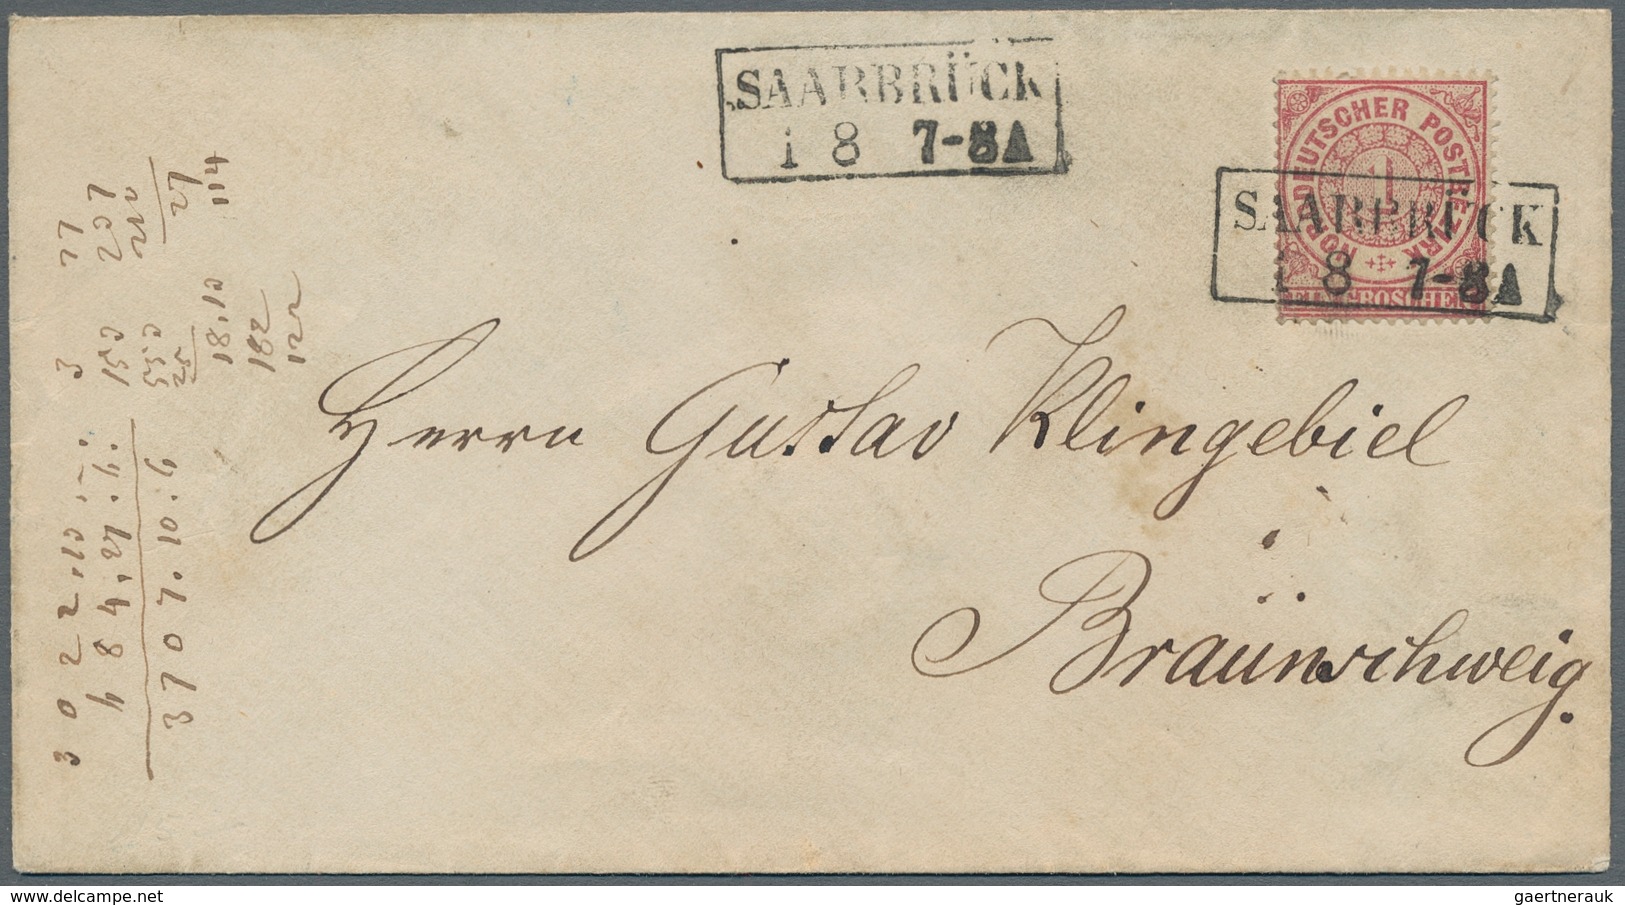 SAARBRÜCK
1 8 7-8A
NORDDEUTSCHER POSTBEZIRK
1
EIN GROSCHEN
SAARBRÜCK
1 8 7-8A
Herrn Gustav Klingebiel
Braünschweig.
3707.10.6
77
207
27
114
3
18,10
182
122
delcampe.net
gaertnerauk